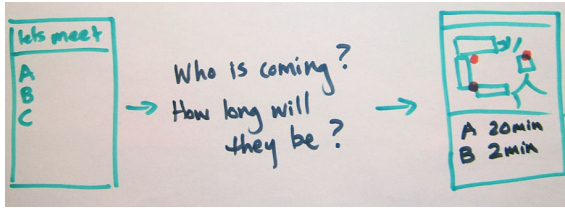 lets meet
A
B
C
Who is coming?
How long will
they be?
A 20min
B 2min